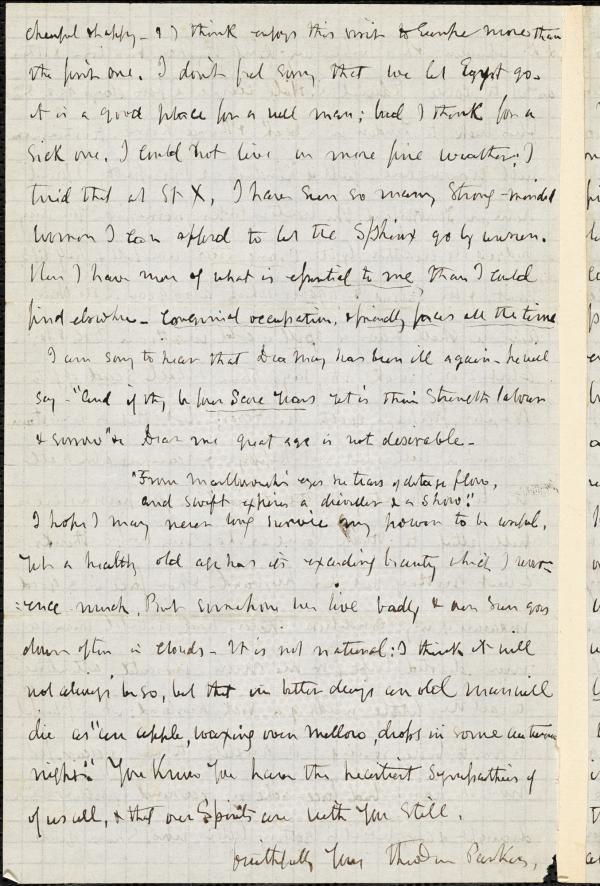 cheerful & happy - & I think enjoys this visit to Europe more than
the first one. I don't feel sorry that we let Egypt go.
it is a good place for a well man; but I think for a
sick one. I could not live in more fine weather: I
tried that at St X, I have seen so many Strong-minded
women I can afford to let the Sphinx go by unseen.
Then I have more of what is essential to me than I could
find elsewhere - Congenial occupation, & friendly faces all the time
I am sorry to hear that Dea May has been ill again - he will
say - "And if they be four Score Years yet is their Strength labour
& sorrow" &c Dear me great age is not desirable -
"From Marlborough's eyes the tears of dotage flow,
and Swift expires a driveller & a show."
I hope I may never long survive my power to be useful,
Yet a healthy old age has its exceeding beauty which I rever-
:ence much. But somehow we live badly & our Sun goes
down often in clouds - It is not natural: I think it will
not always be so, but that in better days an old man will
die as "an apple, waxing over mellow, drops in some autumn
night." You Know You have the heartiest Sympathies of
of us all, & that our Spirits are with You Still.
Faithfully Yours Theodore Parker,